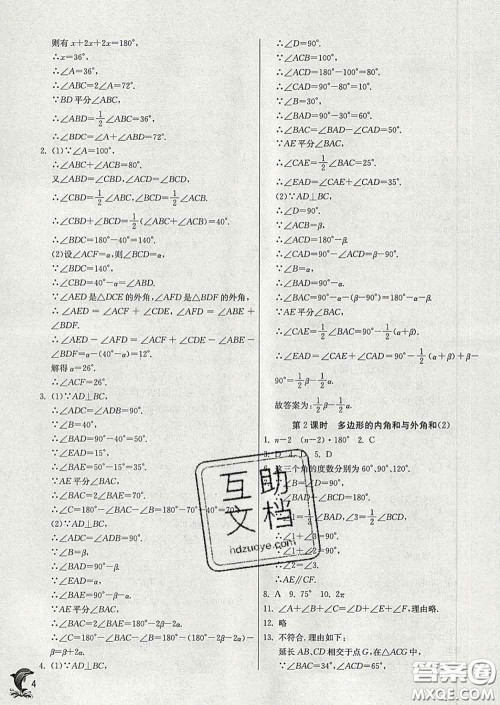 则有 x+2x+2x=180°,
∴x=36°,
∴∠A=36°,
∴∠ABC=2∠A=72°.
∵BD平分∠ABC,
∴∠ABD=1/2∠ABC=36°,
∴∠BDC=∠A+∠ABD=72°.
2. (1)∵∠A=100°,
∴∠ABC+∠ACB=80°.
又∠ABD=∠CBD,
∴∠CBD=1/2∠ABC,∠BCD=1/2∠ACB,
∴∠CBD+∠BCD=1/2∠ABC+1/2∠ACB=40°,
∴∠BDC=180°-40°=140°.
(2)设∠ACF=α,则∠BCF=α.
∵∠BDC=140°,
∴∠CBD=40°-α=∠ABD.
∵∠AED是△DCE的外角,∠AFD是△ABF的外角,
∴∠AED=∠ACF+∠CDE,∠AFD=∠ABD+∠A,
∴∠AED-∠AFD=∠ACF+∠CDE-∠ABD-∠A=
α-(40°-α)=12°.
解得α=26°.
∴∠ACF=26°.
3. (1)∵AD⊥BC,
∴∠ADC=∠ADB=90°.
∵∠B=40°,
∴∠BAD=50°.
∵∠EAD=15°,
∴∠BAE=50°-15°=35°.
∵AE平分∠BAC,
∴∠BAC=2∠BAE=70°,
∴∠C=180°-∠BAC-∠B=180°-70°-40°=70°.
(2)∵AD⊥BC,
∴∠ADC=∠ADB=90°.
∵∠B=β,
∴∠BAD=90°-β.
∵∠EAD=α,
∴∠BAE=90°-β-α.
∵AE平分∠BAC,
∴∠BAC=2∠BAE=180°-2β-2α,
∴∠C=180°-∠BAC-∠B=180°-(180°-2β-2α)-
β=β+2α.
4. (1)∵AD⊥BC,
∴∠D=90°.
∵∠ACB=100°,
∴∠ACD=180°-100°=80°.
∴∠CAD=90°-80°=10°.
∵∠B=30°,
∴∠BAD=90°-30°=60°.
∴∠BAC=∠BAD-∠CAD=50°.
∵AE平分∠BAC,
∴∠CAE=1/2∠BAC=25°,
∴∠EAD=∠CAE+∠CAD=35°.
(2)∵AD⊥BC,
∴∠D=90°.
∵∠ACB=β,
∴∠ACD=180°-β.
∴∠CAD=90°-∠ACD=β-90°.
∵∠B=α,
∴∠BAD=90°-α.
∴∠BAC=90°-α-(β-90°)=180°-α-β.
∵AE平分∠BAC,
∴∠CAE=1/2∠BAC=90°-1/2(α+β),
∴∠EAD=∠CAE+∠CAD=90°-1/2(α+β)+β-
90°=1/2β-1/2α.
故答案为:1/2β-1/2α.
第2课时 多边形的内角和与外角和(2)
1. n-2 (n-2)·180° 2. C
3. D 4. 5. D
这三个角的度数分别为60°,90°,120°.
8. A 9. 75° 10. 2π
11. ∠A+∠B+∠C=∠D+∠E+∠F,理由略.
12. 略
13. 不符合. 理由如下:
延长AB、CD相交于点G,在△ACG中,
∵∠BAC=34°,∠ACD=65°,
4
互助
文档
hdzuoye.com
答案圈
MXQE.COM